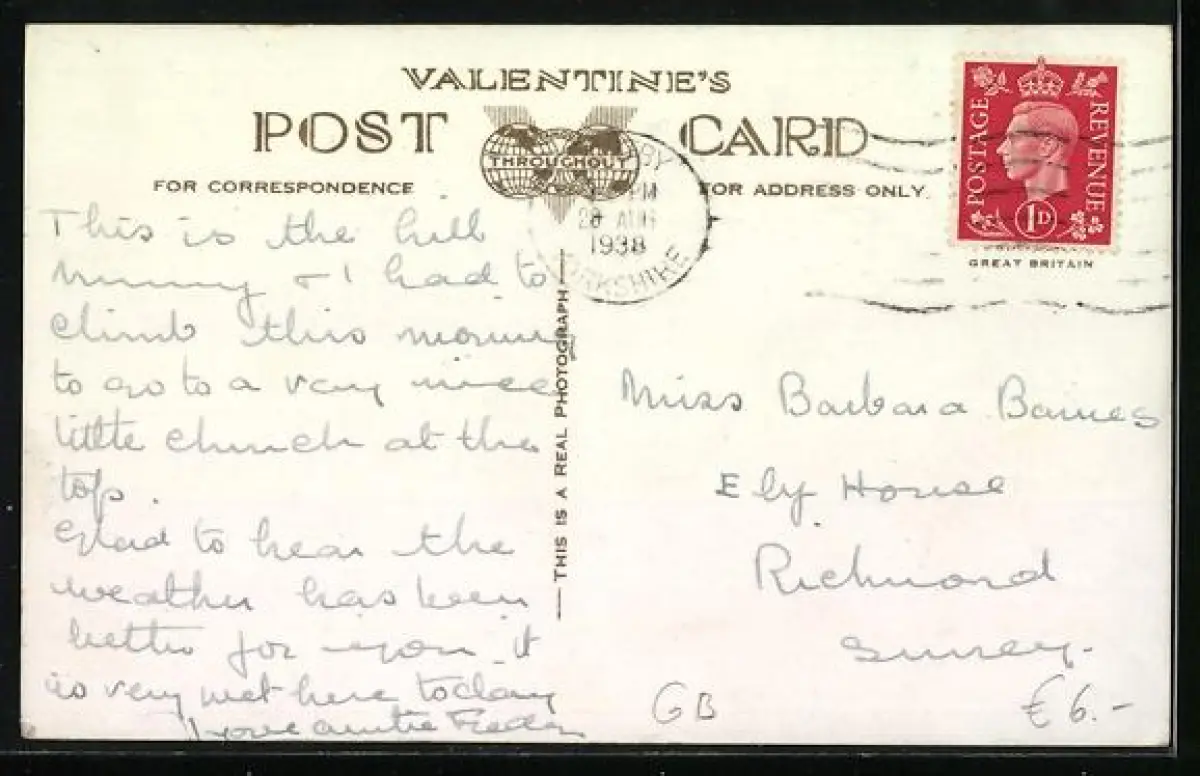 VALENTINE'S
POST CARD
THROUGHOUT
FOR CORRESPONDENCE
FOR ADDRESS ONLY.
POSTAGE REVENUE
1D
GREAT BRITAIN
28 AUG
1938
THIS IS A REAL PHOTOGRAPH
This is the hill
mummy & I had to
climb this morning
to go to a very nice
little church at the
top.
Glad to hear the
weather has been
better for you. it
is very wet here today
Love auntie
Miss Barbara Barnes
Ely House
Richmond
Surrey.
GB
€6.-